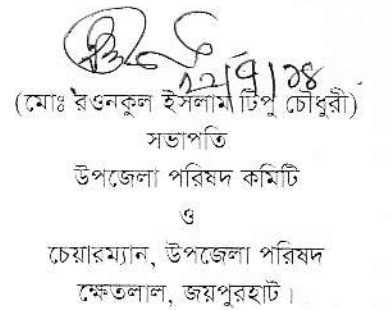 ১২/৭/১৪
(মোঃ রওনকুল ইসলাম টিপু চৌধুরী)
সভাপতি
উপজেলা পরিষদ কমিটি
ও
চেয়ারম্যান, উপজেলা পরিষদ
ক্ষেতলাল, জয়পুরহাট।